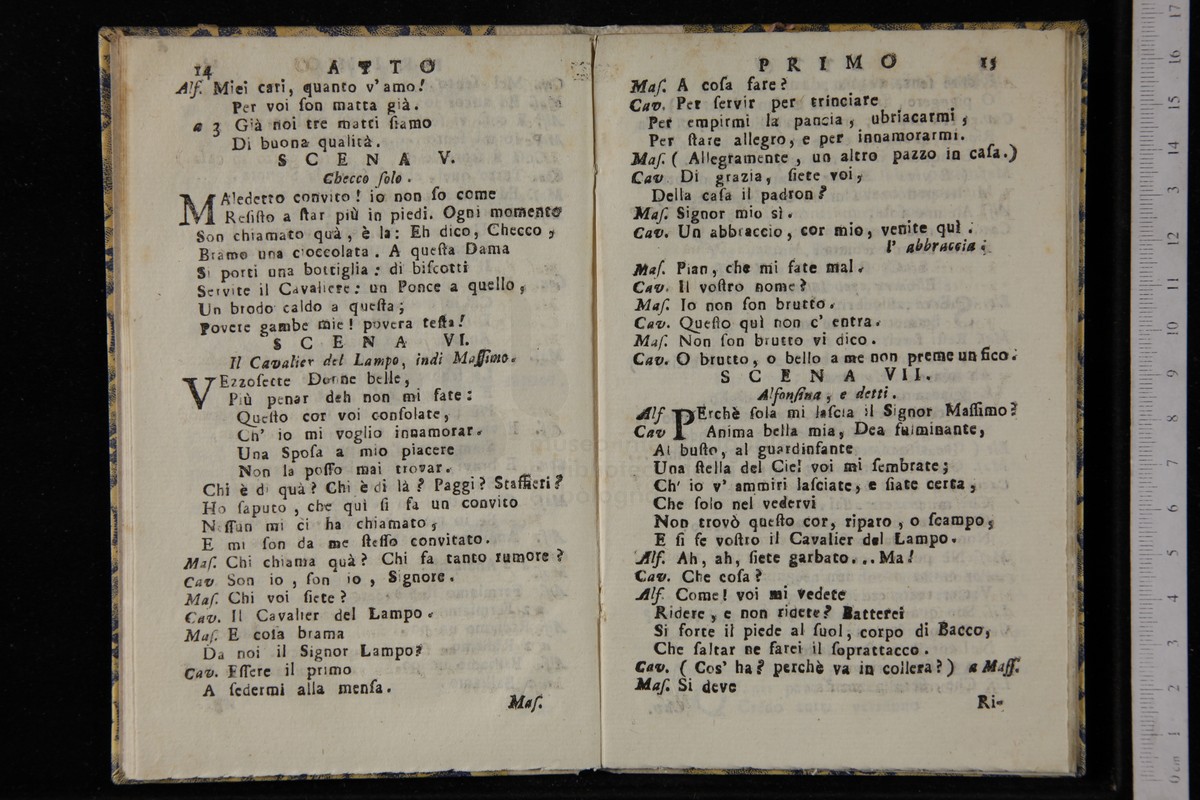 14 ATTO
Alf. Miei cari, quanto v'amo!
Per voi ſon matta già.
a 3 Già noi tre matti ſiamo
Di buona qualità.
SCENA V.
Checco ſolo.
MAledetto convito! io non ſo come
Reſiſto a ſtar più in piedi. Ogni momento
Son chiamato quà, è la: Eh dico, Checco,
Bramo una cioccolata. A queſta Dama
Si porti una bottiglia: di biſcotti
Servite il Cavaliere: un Ponce a quello,
Un brodo caldo a queſta;
Povere gambe mie! povera teſta!
SCENA VI.
Il Cavalier del Lampo, indi Maſſimo.
VEzzoſette Donne belle,
Più penar deh non mi fate:
Queſto cor voi conſolate,
Ch' io mi voglio innamorar.
Una Spoſa a mio piacere
Non la poſſo mai trovar.
Chi è di quà? Chi è di là? Paggi? Staffieri?
Ho ſaputo, che quì ſi fa un convito
Neſſun mi ci ha chiamato,
E mi ſon da me ſteſſo convitato.
Maſ. Chi chiama quà? Chi fa tanto rumore?
Cav Son io, ſon io, Signore.
Maſ. Chi voi ſiete?
Cav. Il Cavalier del Lampo.
Maſ. E coſa brama
Da noi il Signor Lampo?
Cav. Eſſere il primo
A ſedermi alla menſa.
Maſ.
PRIMO 15
Maſ. A coſa fare?
Cav. Per ſervir per trinciare
Per empirmi la pancia, ubriacarmi,
Per ſtare allegro, e per innamorarmi.
Maſ. ( Allegramente, un altro pazzo in caſa.)
Cav Di grazia, ſiete voi,
Della caſa il padron?
Maſ. Signor mio sì.
Cav. Un abbraccio, cor mio, venite quì.
l' abbraccia;
Maſ. Pian, che mi fate mal.
Cav. Il voſtro nome?
Maſ. Io non ſon brutto.
Cav. Queſto quì non c' entra.
Maſ. Non ſon brutto vi dico.
Cav. O brutto, o bello a me non preme un fico.
SCENA VII.
Alfonſina, e detti.
Alf PErchè ſola mi laſcia il Signor Maſſimo?
Cav Anima bella mia, Dea fulminante,
Al buſto, al guardinfante
Una ſtella del Ciel voi mi ſembrate;
Ch' io v' ammiri laſciate, e ſiate certa,
Che ſolo nel vedervi
Non trovò queſto cor, riparo, o ſcampo,
E ſi fe voſtro il Cavalier del Lampo.
Alf. Ah, ah, ſiete garbato...Ma!
Cav. Che coſa?
Alf. Come! voi mi vedete
Ridere, e non ridete? Batterei
Sì forte il piede al ſuol, corpo di Bacco,
Che ſaltar ne farei il ſoprattacco.
Cav. ( Cos' ha? perchè va in collera?) a Maſſ.
Maſ. Si deve
Ri-